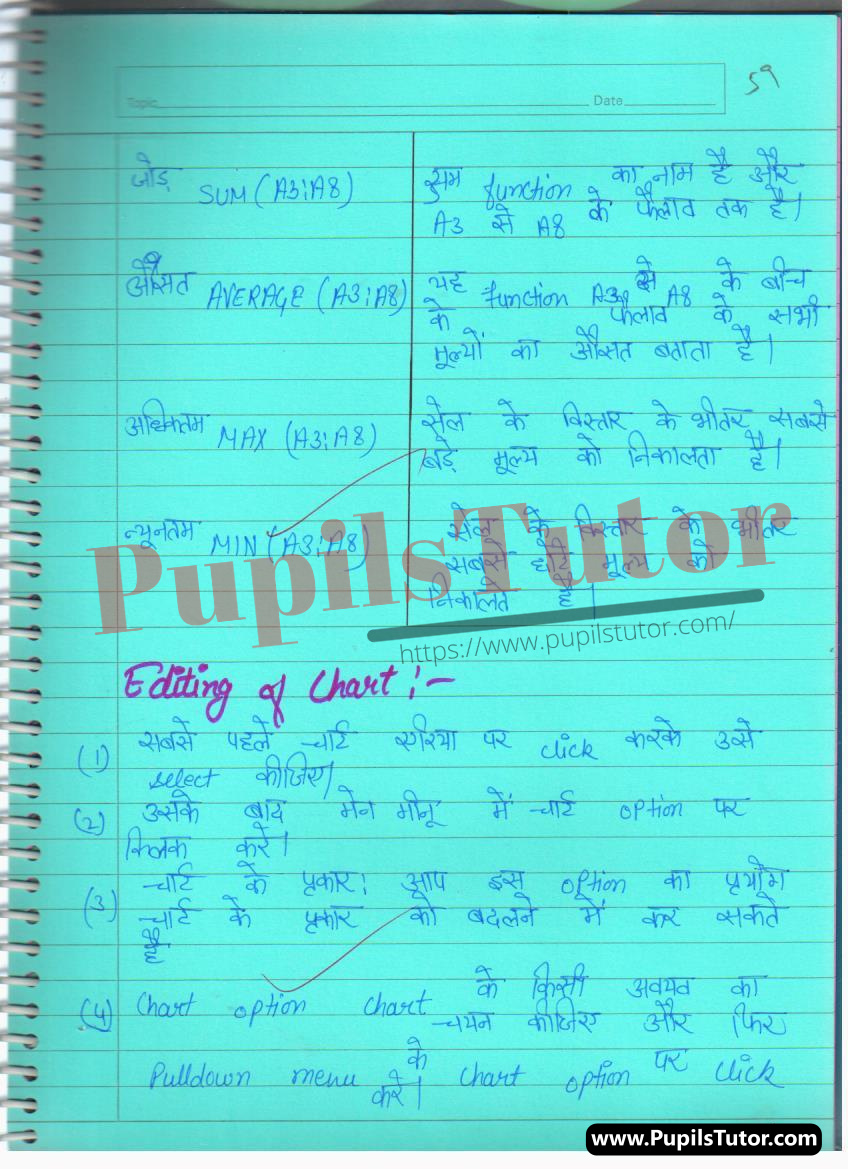 59
Topic Date
जोड़ SUM (A3:A8) सुम function का नाम है और
A3 से A8 के फैलाव तक है।
औसत AVERAGE (A3:A8) यह function A3 से A8 के बीच
के फैलाव के सभी
मूल्यों का औसत बताता है।
अधिकतम MAX (A3:A8) सेल के विस्तार के भीतर सबसे
बड़े मूल्य को निकालता है।
न्यूनतम MIN (A3:A8) सेल के विस्तार के भीतर
सबसे छोटे मूल्य को
निकालते है।
PupilsTutor
https://www.pupilstutor.com/
Editing of Chart :-
(1) सबसे पहले चार्ट एरिया पर click करके उसे
select कीजिए।
(2) उसके बाद मेन मीनू में चार्ट option पर
क्लिक करें।
(3) चार्ट के प्रकार: आप इस option का प्रयोग
चार्ट के प्रकार को बदलने में कर सकते
है
(4) Chart option chart के किसी अवयव का
चयन कीजिए और फिर
Pulldown menu के chart option पर click
करें।
www.PupilsTutor.com